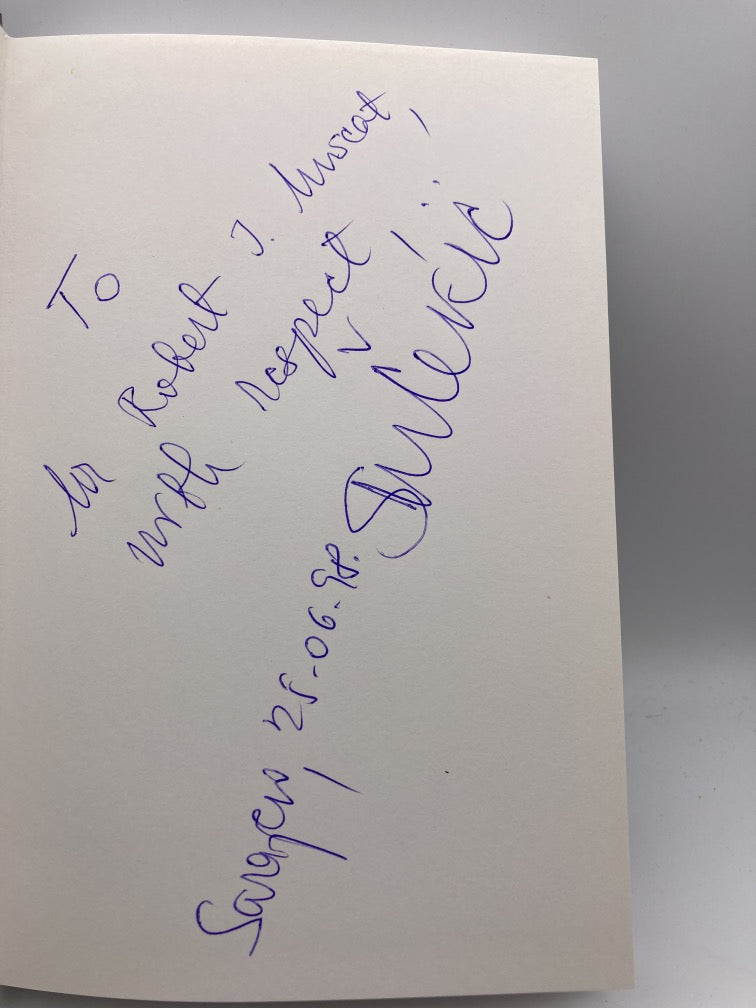 To
Mr Robert J. Muscat,
with respect
Sarajevo, 25.06.98.